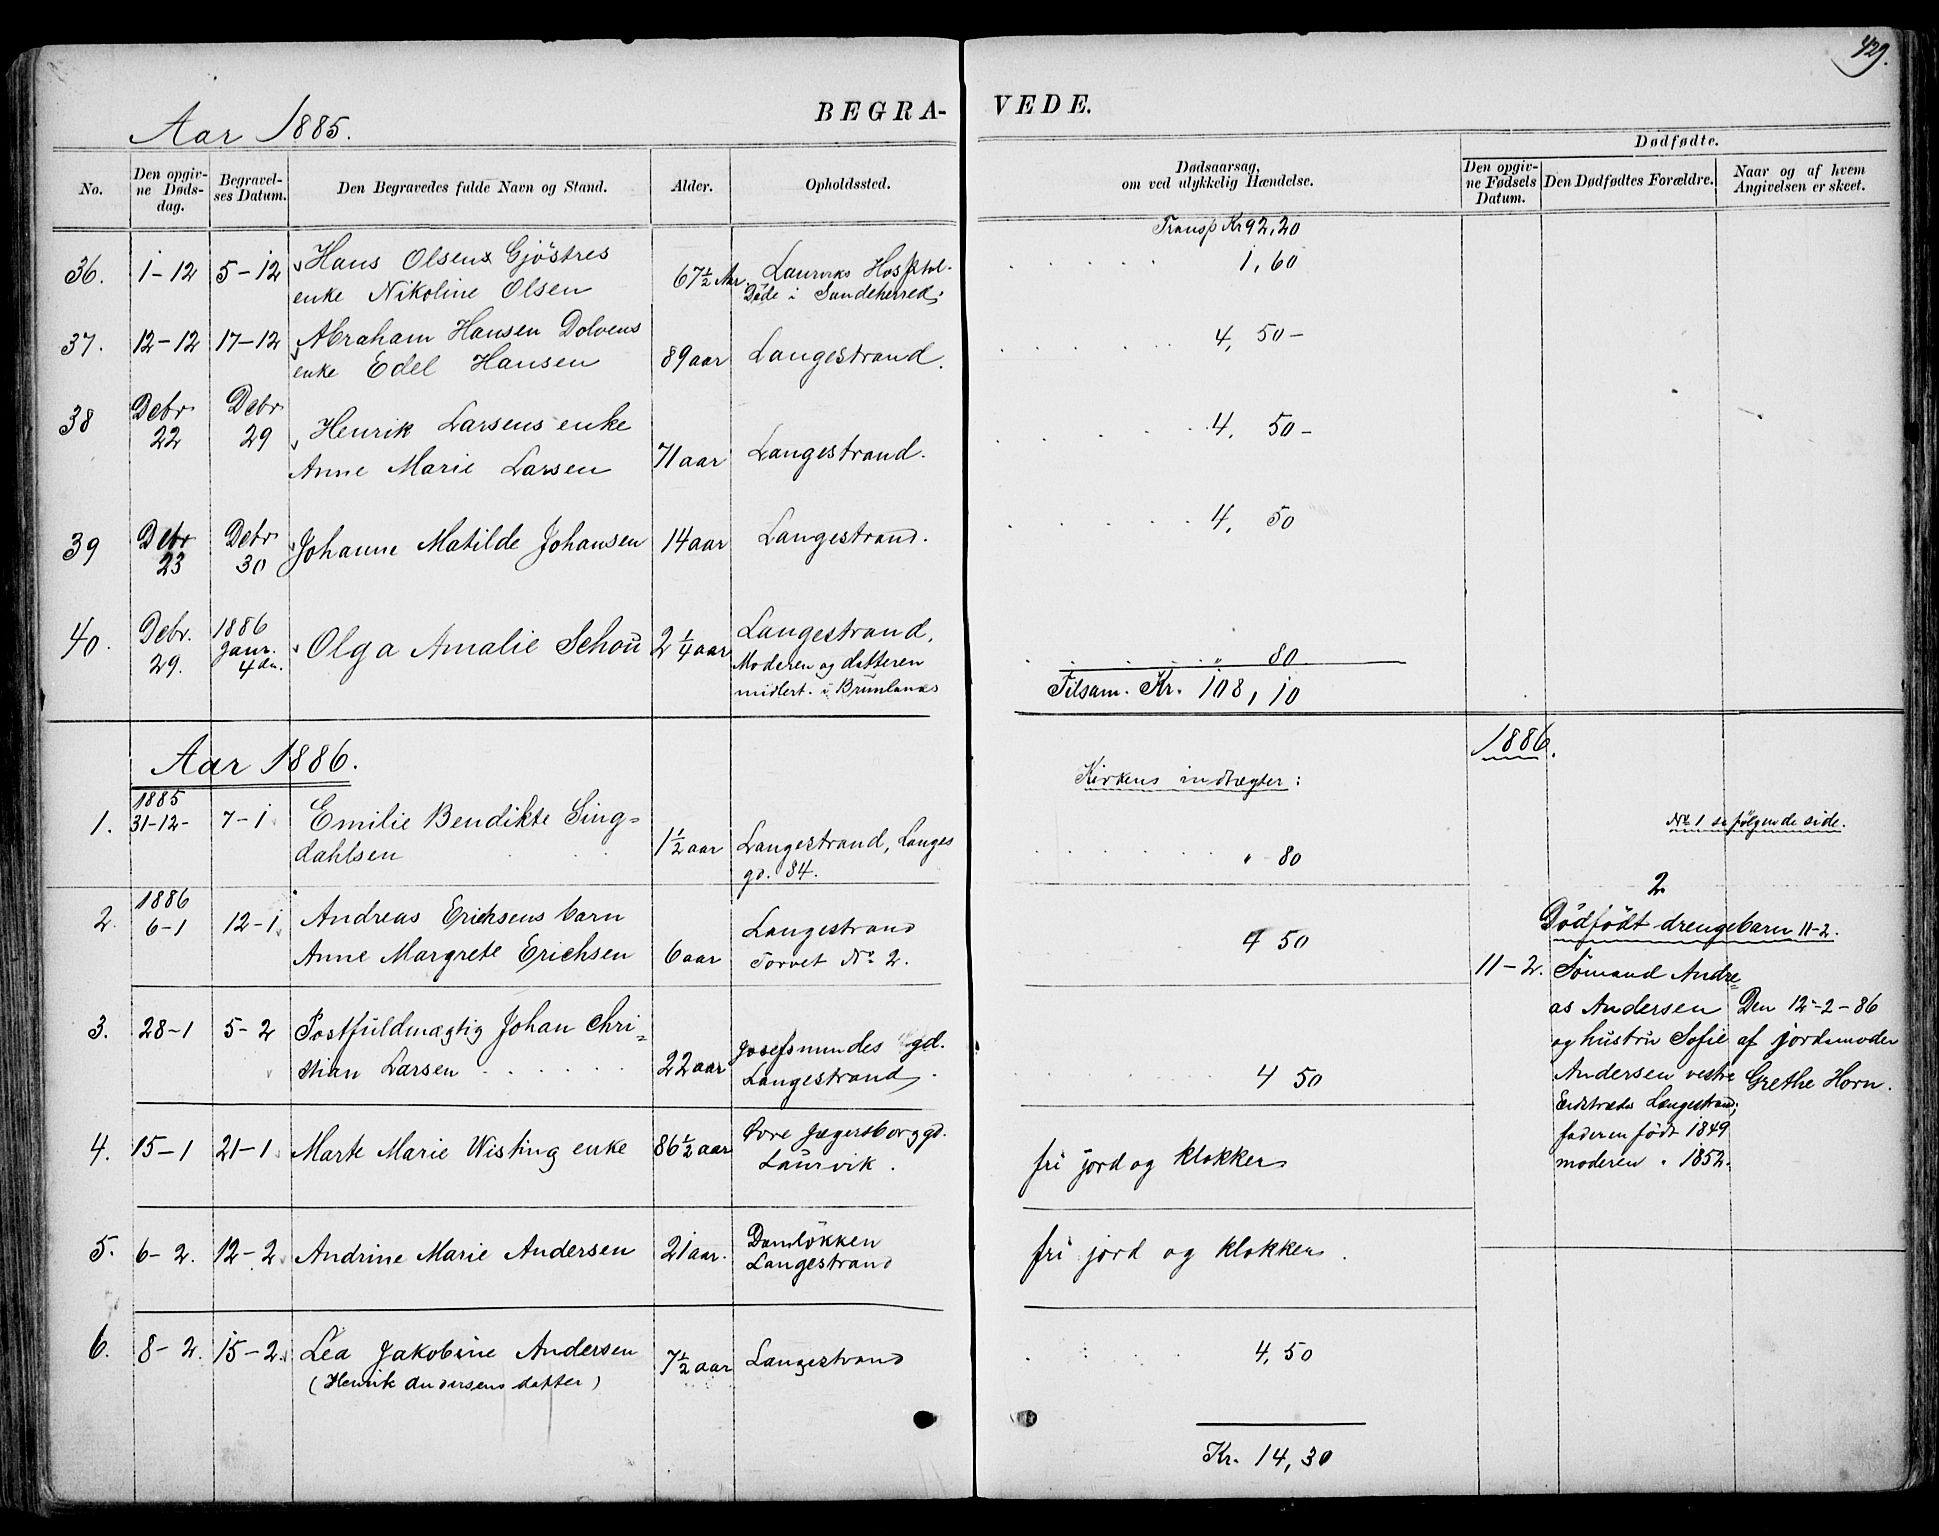 429.
Aar 1885.
BEGRA-
VEDE.
No.
Den opgiv-
ne Døds-
dag.
Begravel-
ses Datum.
Den Begravedes fulde Navn og Stand.
Alder.
Opholdssted.
Dødsaarsag,
om ved ulykkelig Hændelse.
Dødfødte.
Den opgiv-
ne Fødsels
Datum.
Den Dødfødtes Forældre.
Naar og af hvem
Angivelsen er skeet.
Transp Kr 92,20
36. 1-12 5-12 Hans Olsens Gjöstres 67½ Aar Laurviks Hosptal. 1,60
enke Nikoline Olsen Döde i Sandeherred.
37. 12-12 17-12 Abraham Hansen Dolvens 4, 50-
enke Edel Hansen 89 aar Langestrand.
38 Debr Debr Henrik Larsens enke 4, 50-
22 29 Anne Marie Larsen 71 aar Langestrand.
39 Debr Debr Johanne Matilde Johansen 14 aar Langestrand. 4, 50
23 30
40. Debr. 1886 Olga Amalie Schou 2¼ aar Langestrand,
29. Janr. Moderen og datteren " 80
4 de. midlert. i Brunlanæs Tilsam. Kr. 108,10
Aar 1886.
1886.
Kirkens indtægter:
1. 1885
31-12- 7-1 Emilie Bendikte Sing=
dahlsen 1½ aar Langestrand, Langes " 80
gd. 84.
No 1 se følgende side.
2. 1886
6-1 12-1 Andreas Erichsens barn Langestrand
Anne Margrete Erichsen 6 aar Torvet No 2. 4 50
3. 28-1 5-2 Postfuldmægtig Johan Chri= Josefsmindes gd.
stian Larsen 22 aar Langestrand. 4 50
4. 15-1 21-1 Marte Marie Wisting enke 86½ aar Øvre Jægersborggd.
Laurvik. fri jord og klokker
5. 6-2. 12-2 Andrine Marie Andersen 21 aar. Damlökken
Langestrand fri jord og klokker.
6. 8-2. 15-2 Lea Jakobine Andersen 7½ aar Langestrand 4,50
(Henrik Andersens datter)
Kr. 14,30
2
Dödfödt drengebarn 11-2.
11-2. Sömand Andre=
as Andersen
og hustru Sofie
Andersen vestre
Langestrand;
faderen födt 1849
moderen " 1852.
Den 12-2-86
af jordemoder
Grethe Horn.